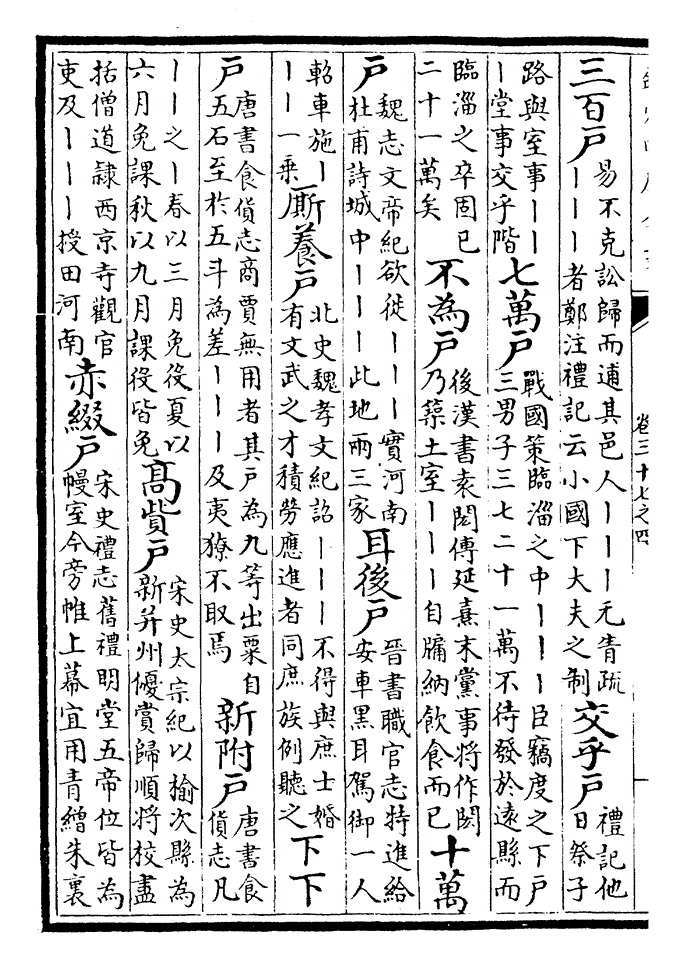 卷三十七之四
三百戶易不克訟歸而逋其邑人｜｜｜无眚疏｜｜｜者鄭注禮記云小國下大夫之制交乎戶禮記他日祭子
路與室事｜｜｜堂事交乎階七萬戶戰國策臨淄之中｜｜｜臣竊度之下戶三男子三七二十一萬不待發於遠縣而
臨淄之卒固已二十一萬矣不為戶後漢書袁閎傳延熹末黨事將作閎乃築土室｜｜｜自牖納飲食而已十萬
戶魏志文帝紀欲徙｜｜｜實河南杜甫詩城中｜｜｜此地兩三家耳後戶晉書職官志特進給安車黑耳駕御一人
軺車施｜｜｜一乗厮養戶北史魏孝文紀詔｜｜｜不得與庶士婚有文武之才積勞應進者同庶族例聽之下下
戶唐書食貨志商賈無用者其戶為九等出粟自五石至於五斗為差｜｜｜及夷獠不取焉新附戶唐書食貨志凡
｜｜之｜春以三月免役夏以六月免課秋以九月課役皆免高貲戶宋史太宗紀以榆次縣為新并州優賞歸順將校盡
括僧道隷西京寺觀官吏及｜｜｜授田河南赤綴戶宋史禮志舊禮明堂五帝位皆為幔室今旁帷上幕宜用青繒朱裏